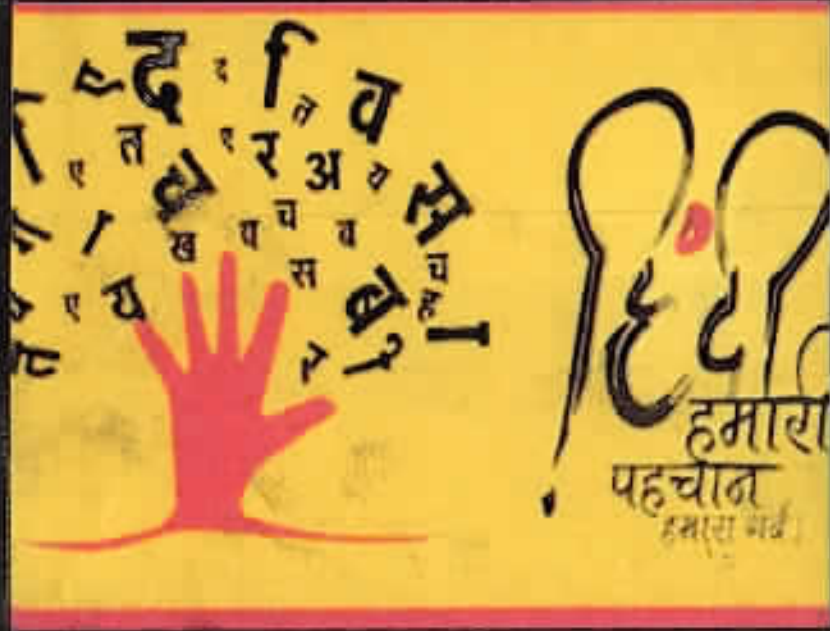 द
द
ि
त
व
ए
त
ए
र
अ
य
स
ख
प
च
व
स
च
ह
ए
य
हिंदी
हमारी
पहचान
हमारा गर्व।